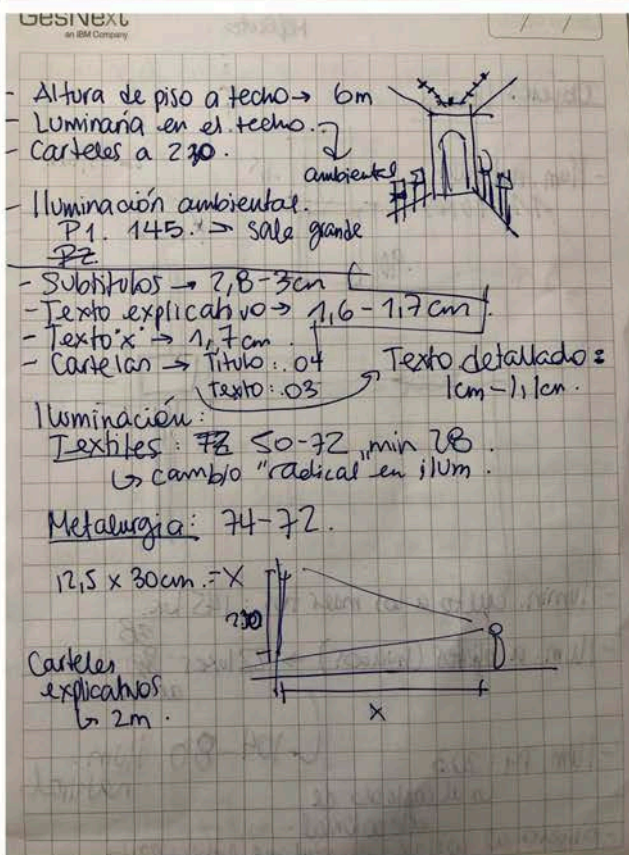 GesNext
an IBM Company
- Altura de piso a techo → 6m
- Luminaria en el techo.
- Carteles a 230.
ambiental
- Iluminación ambiental.
P1. 145. → sala grande
P2
- Subtítulos → 2,8-3cm
- Texto explicativo → 1,6-1,7cm.
- Texto "x" → 1,7cm.
- Cartelan → Título: .04
Texto: .03
Texto detallado:
1cm-1,1cm.
Iluminación:
Textiles: 50-72, min 28.
↳ cambio "radical" en ilum.
Metalurgia: 74-72.
12,5 x 30cm. = X
230
Carteles
explicativos
↳ 2m.
X